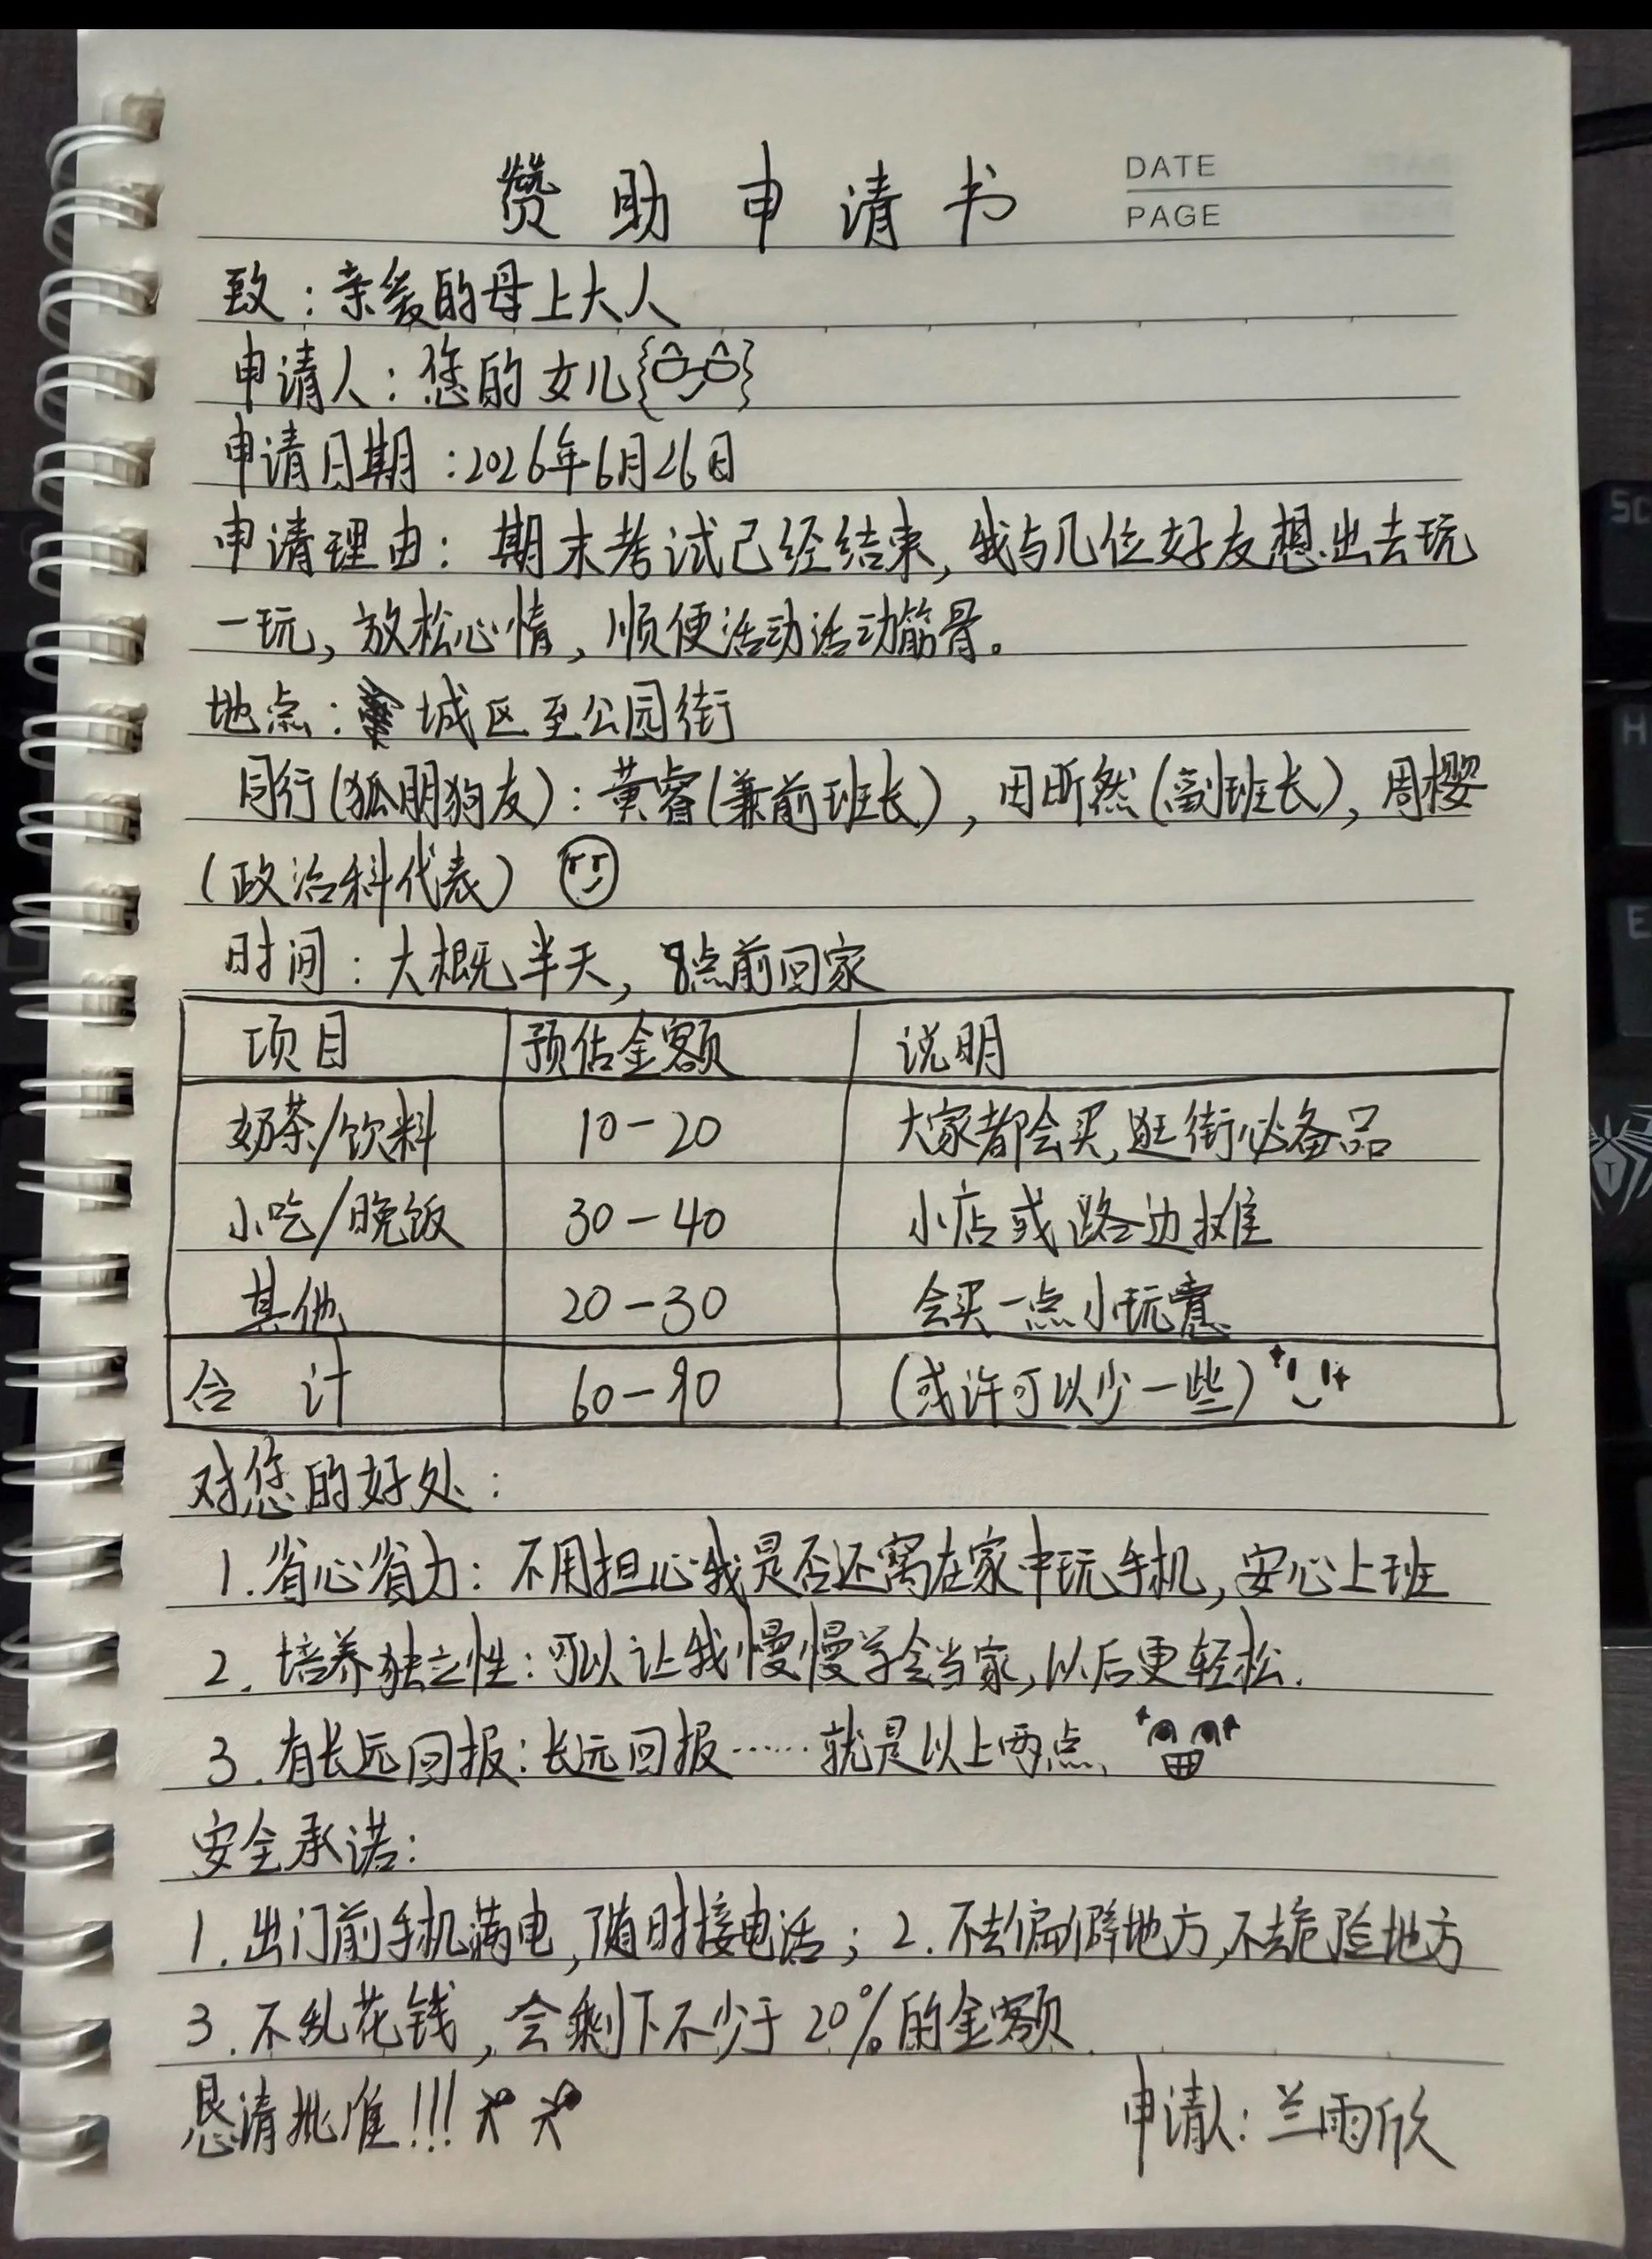 赞助申请书
DATE
PAGE
致：亲爱的母上大人
申请人：您的女儿
申请日期：2026年6月26日
申请理由：期末考试已经结束，我与几位好友想出去玩
一玩，放松心情，顺便活动活动筋骨。
地点：城区至公园街
同行(狐朋狗友)：黄睿(兼前班长)，田昕然(副班长)，周樱
(政治科代表)
时间：大概半天，8点前回家
项目 预估金额 说明
奶茶/饮料 10-20 大家都会买，逛街必备品
小吃/晚饭 30-40 小店或路边摊
其他 20-30 会买一点小玩意
合计 60-90 (或许可以少一些)
对您的好处：
1.省心省力：不用担心我是否还窝在家中玩手机，安心上班
2.培养独立性：可以让我慢慢学会当家，以后更轻松.
3.有长远回报：长远回报……就是以上两点、
安全承诺：
1.出门前手机满电，随时接电话；2.不去偏僻地方，不去危险地方
3.不乱花钱，会剩下不少于20%的金额.
恳请批准!!! 申请人：兰雨欣
SC
H
E